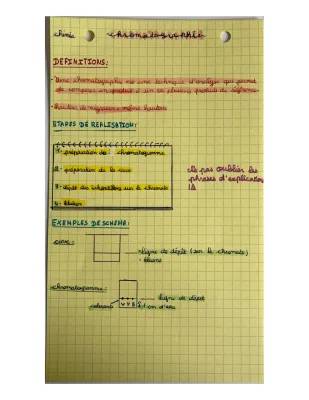 chimie
chromatographie
DEFINITIONS:
- Une chromatographie est une technique d'analyse qui permet
de comparer un produit à un ou plusieurs produits de référence
- hauteur de migration = même hauteur
ETAPES DE REALISATION:
1- préparation de chromatogramme
2- préparation de la cuve
3- dépôt des échantillons sur le chromato
4- élution
ne pas oublier les
phrases d'explication
EXEMPLES DE SCHEMA:
cuve:
- ligne de dépôt (sur le chromato)
- éluant
chromatogramme:
ligne de dépôt
1 cm d'eau